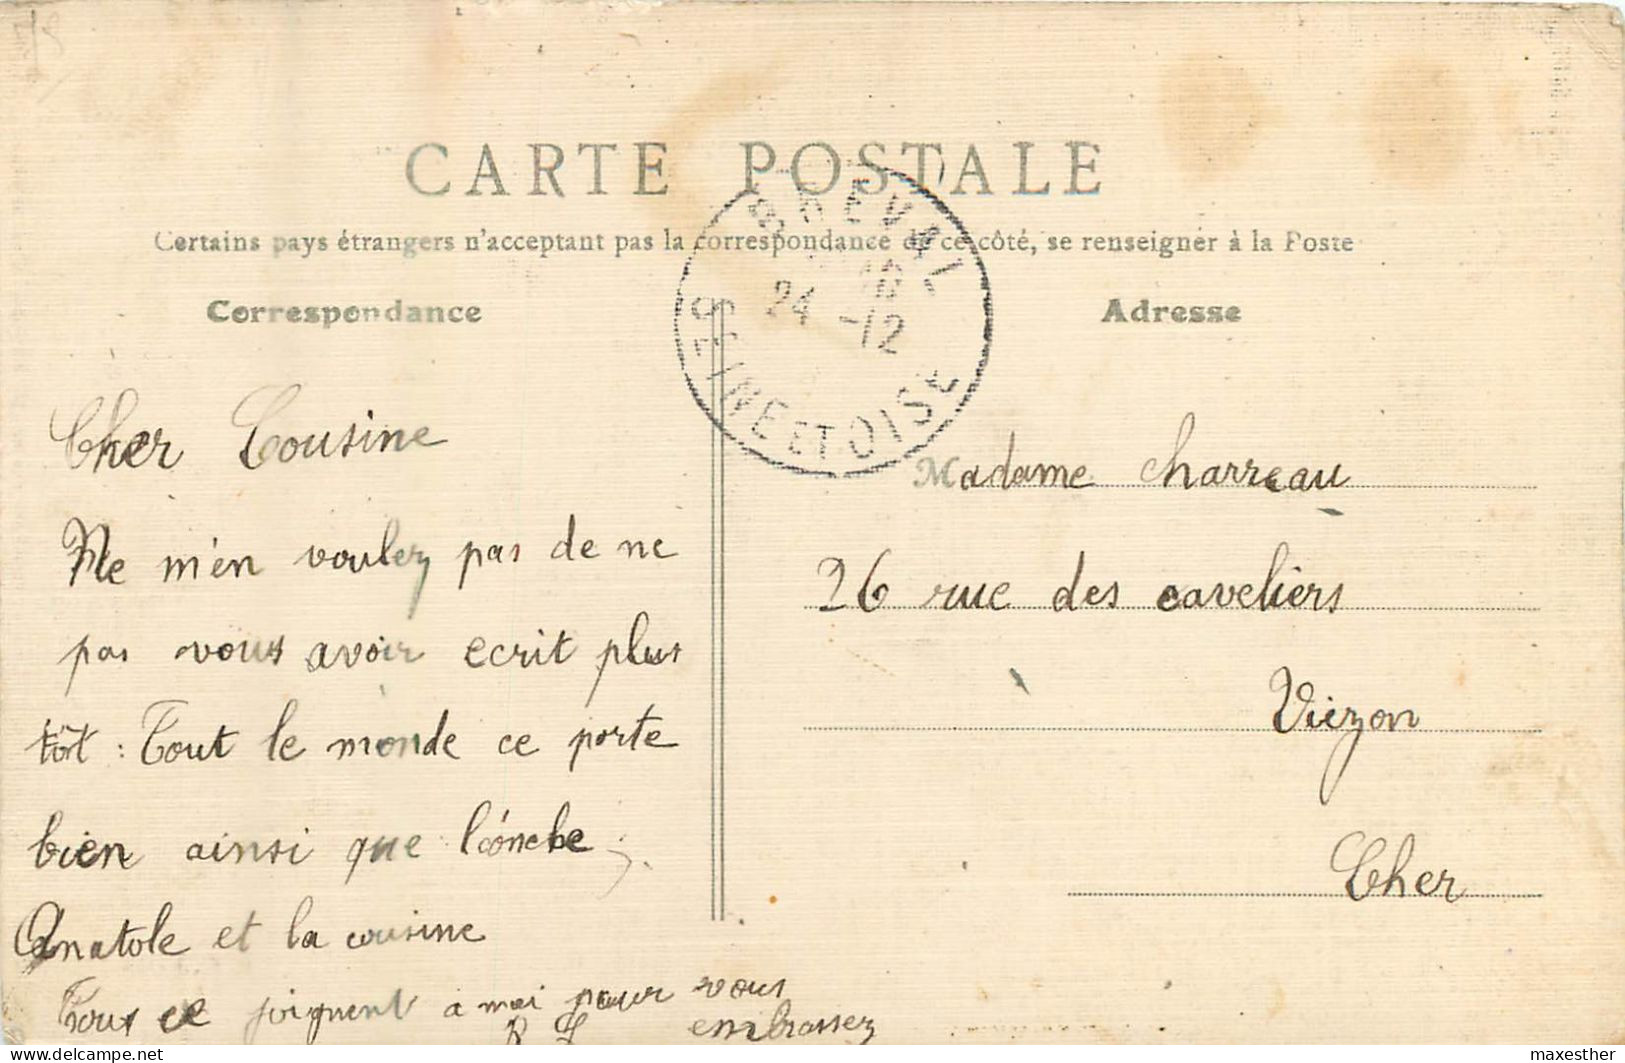 CARTE POSTALE
Certains pays étrangers n'acceptent pas la correspondance de ce côté, se renseigner à la Poste
Correspondance
Adresse
BREVAL
24 -12
SEINE ET OISE
Cher Cousine
Ne m'en voulez pas de ne
pas vous avoir ecrit plus
tôt : Tout le monde ce porte
bien ainsi que l'óncle
Anatole et la cousine
Tous ce joignent a moi pour vous
embrasser
R L
Madame Charreau
26 rue des caveliers
Viezon
Cher
maxesther
delcampe.net